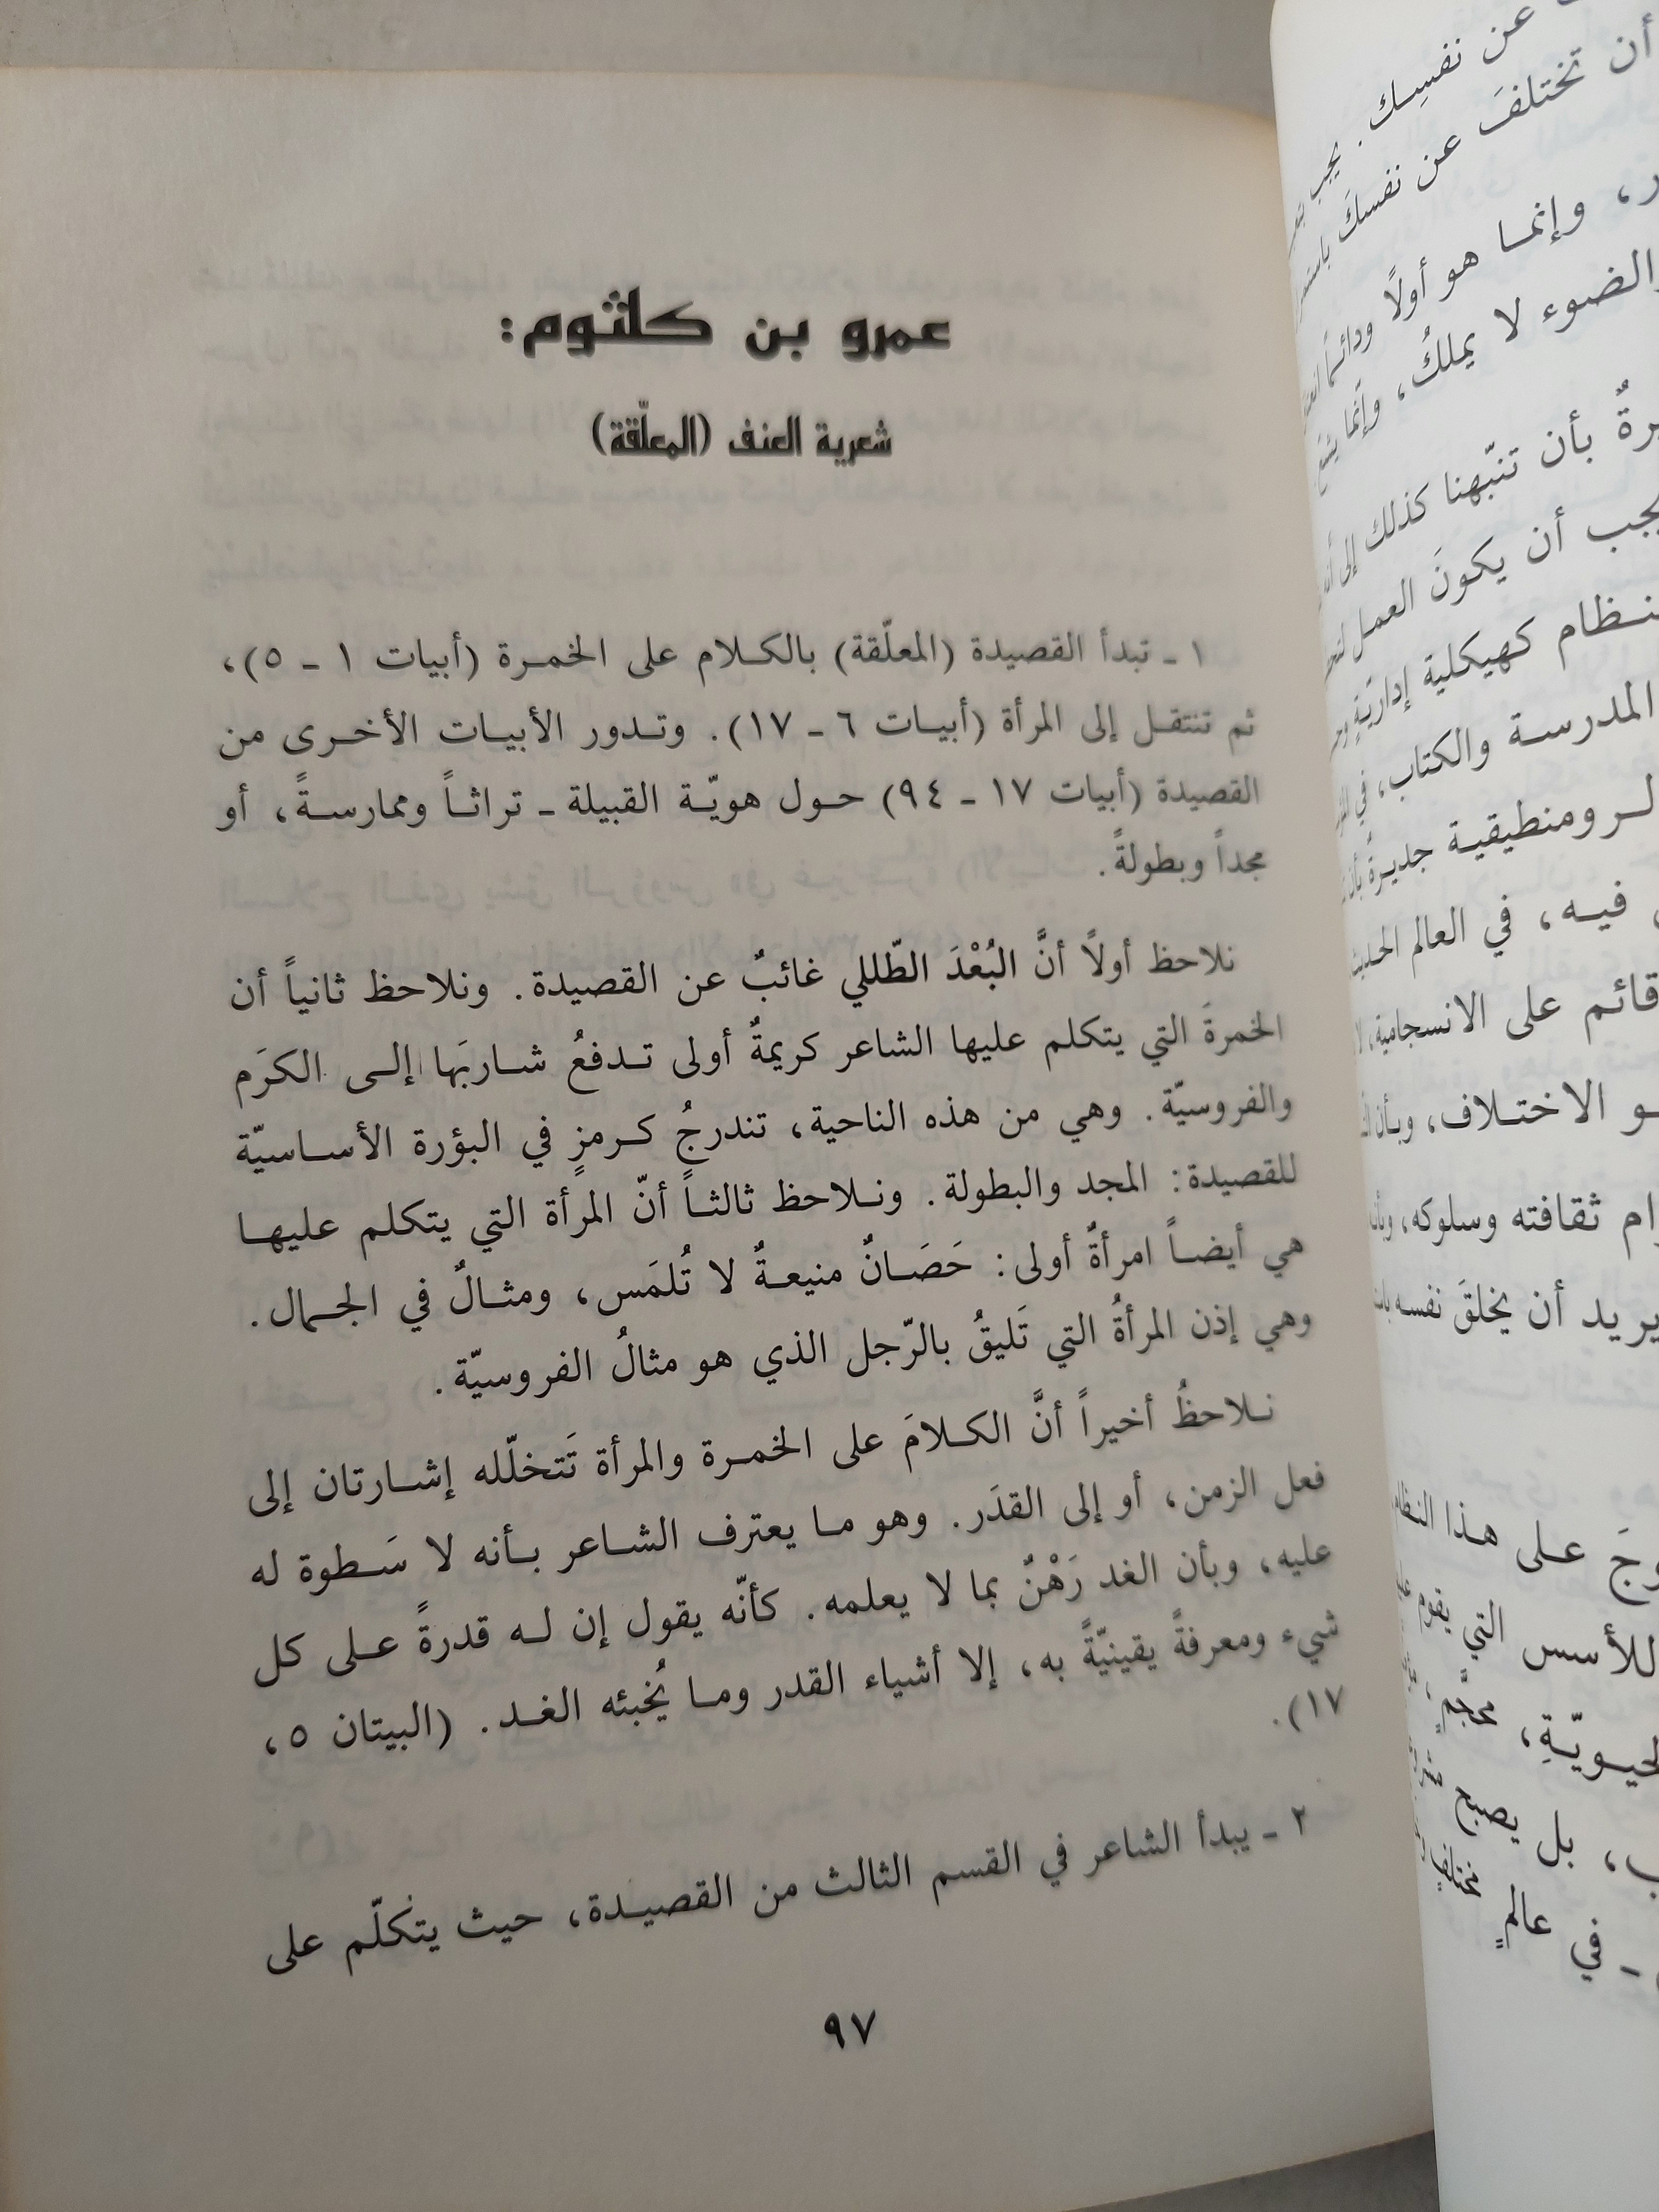 عمرو بن كلثوم:
شعرية العنف (المعلّقة)
١ ـ تبدأ القصيدة (المعلّقة) بالكلام على الخمرة (أبيات ١ ـ ٥)،
ثم تنتقل إلى المرأة (أبيات ٦ ـ ١٧). وتدور الأبيات الأخرى من
القصيدة (أبيات ١٧ ـ ٩٤) حول هويّة القبيلة ـ تراثاً وممارسةً، أو
مجداً وبطولةً.
نلاحظ أولاً أنَّ البُعْدَ الطّللي غائبٌ عن القصيدة. ونلاحظ ثانياً أن
الخمرةَ التي يتكلم عليها الشاعر كريمةٌ أولى تدفعُ شاربَها إلى الكرَم
والفروسيّة. وهي من هذه الناحية، تندرجُ كرمزٍ في البؤرة الأساسيّة
للقصيدة: المجد والبطولة. ونلاحظ ثالثاً أنّ المرأة التي يتكلم عليها
هي أيضاً امرأةٌ أولى: حَصَانٌ منيعةٌ لا تُلمَس، ومثالٌ في الجمال.
وهي إذن المرأةُ التي تَليقُ بالرّجل الذي هو مثالُ الفروسيّة.
نلاحظُ أخيراً أنَّ الكلامَ على الخمرة والمرأة تَتخلّله إشارتان إلى
فعل الزمن، أو إلى القدَر. وهو ما يعترف الشاعر بأنه لا سَطوة له
عليه، وبأن الغد رَهْنٌ بما لا يعلمه. كأنّه يقول إن له قدرةً على كل
شيء ومعرفةً يقينيّةً به، إلا أشياء القدر وما يُخبئه الغد. (البيتان ٥،
١٧).
٢ ـ يبدأ الشاعر في القسم الثالث من القصيدة، حيث يتكلّم على
٩٧
عن نفسِك. يجب
أن تختلفَ عن نفسكَ
، وإنما هو أولاً ودائماً
والضوء لا يملكُ، وإنما
بأن تنبّهنا كذلك إلى
يجب أن يكونَ العمل
كهيكلية إداريّةٍ
المدرسة والكتاب، في
ومنطيقية جديرةٌ
فيه، في العالم الحديث
قائم على الانسجامية،
الاختلاف، وبأن
ثقافته وسلوكه،
يريد أن يخلقَ نفسه
على هذا النظام
للأسس التي يقوم
، بل يصبح
ـ في عالمٍ مختلفٍ